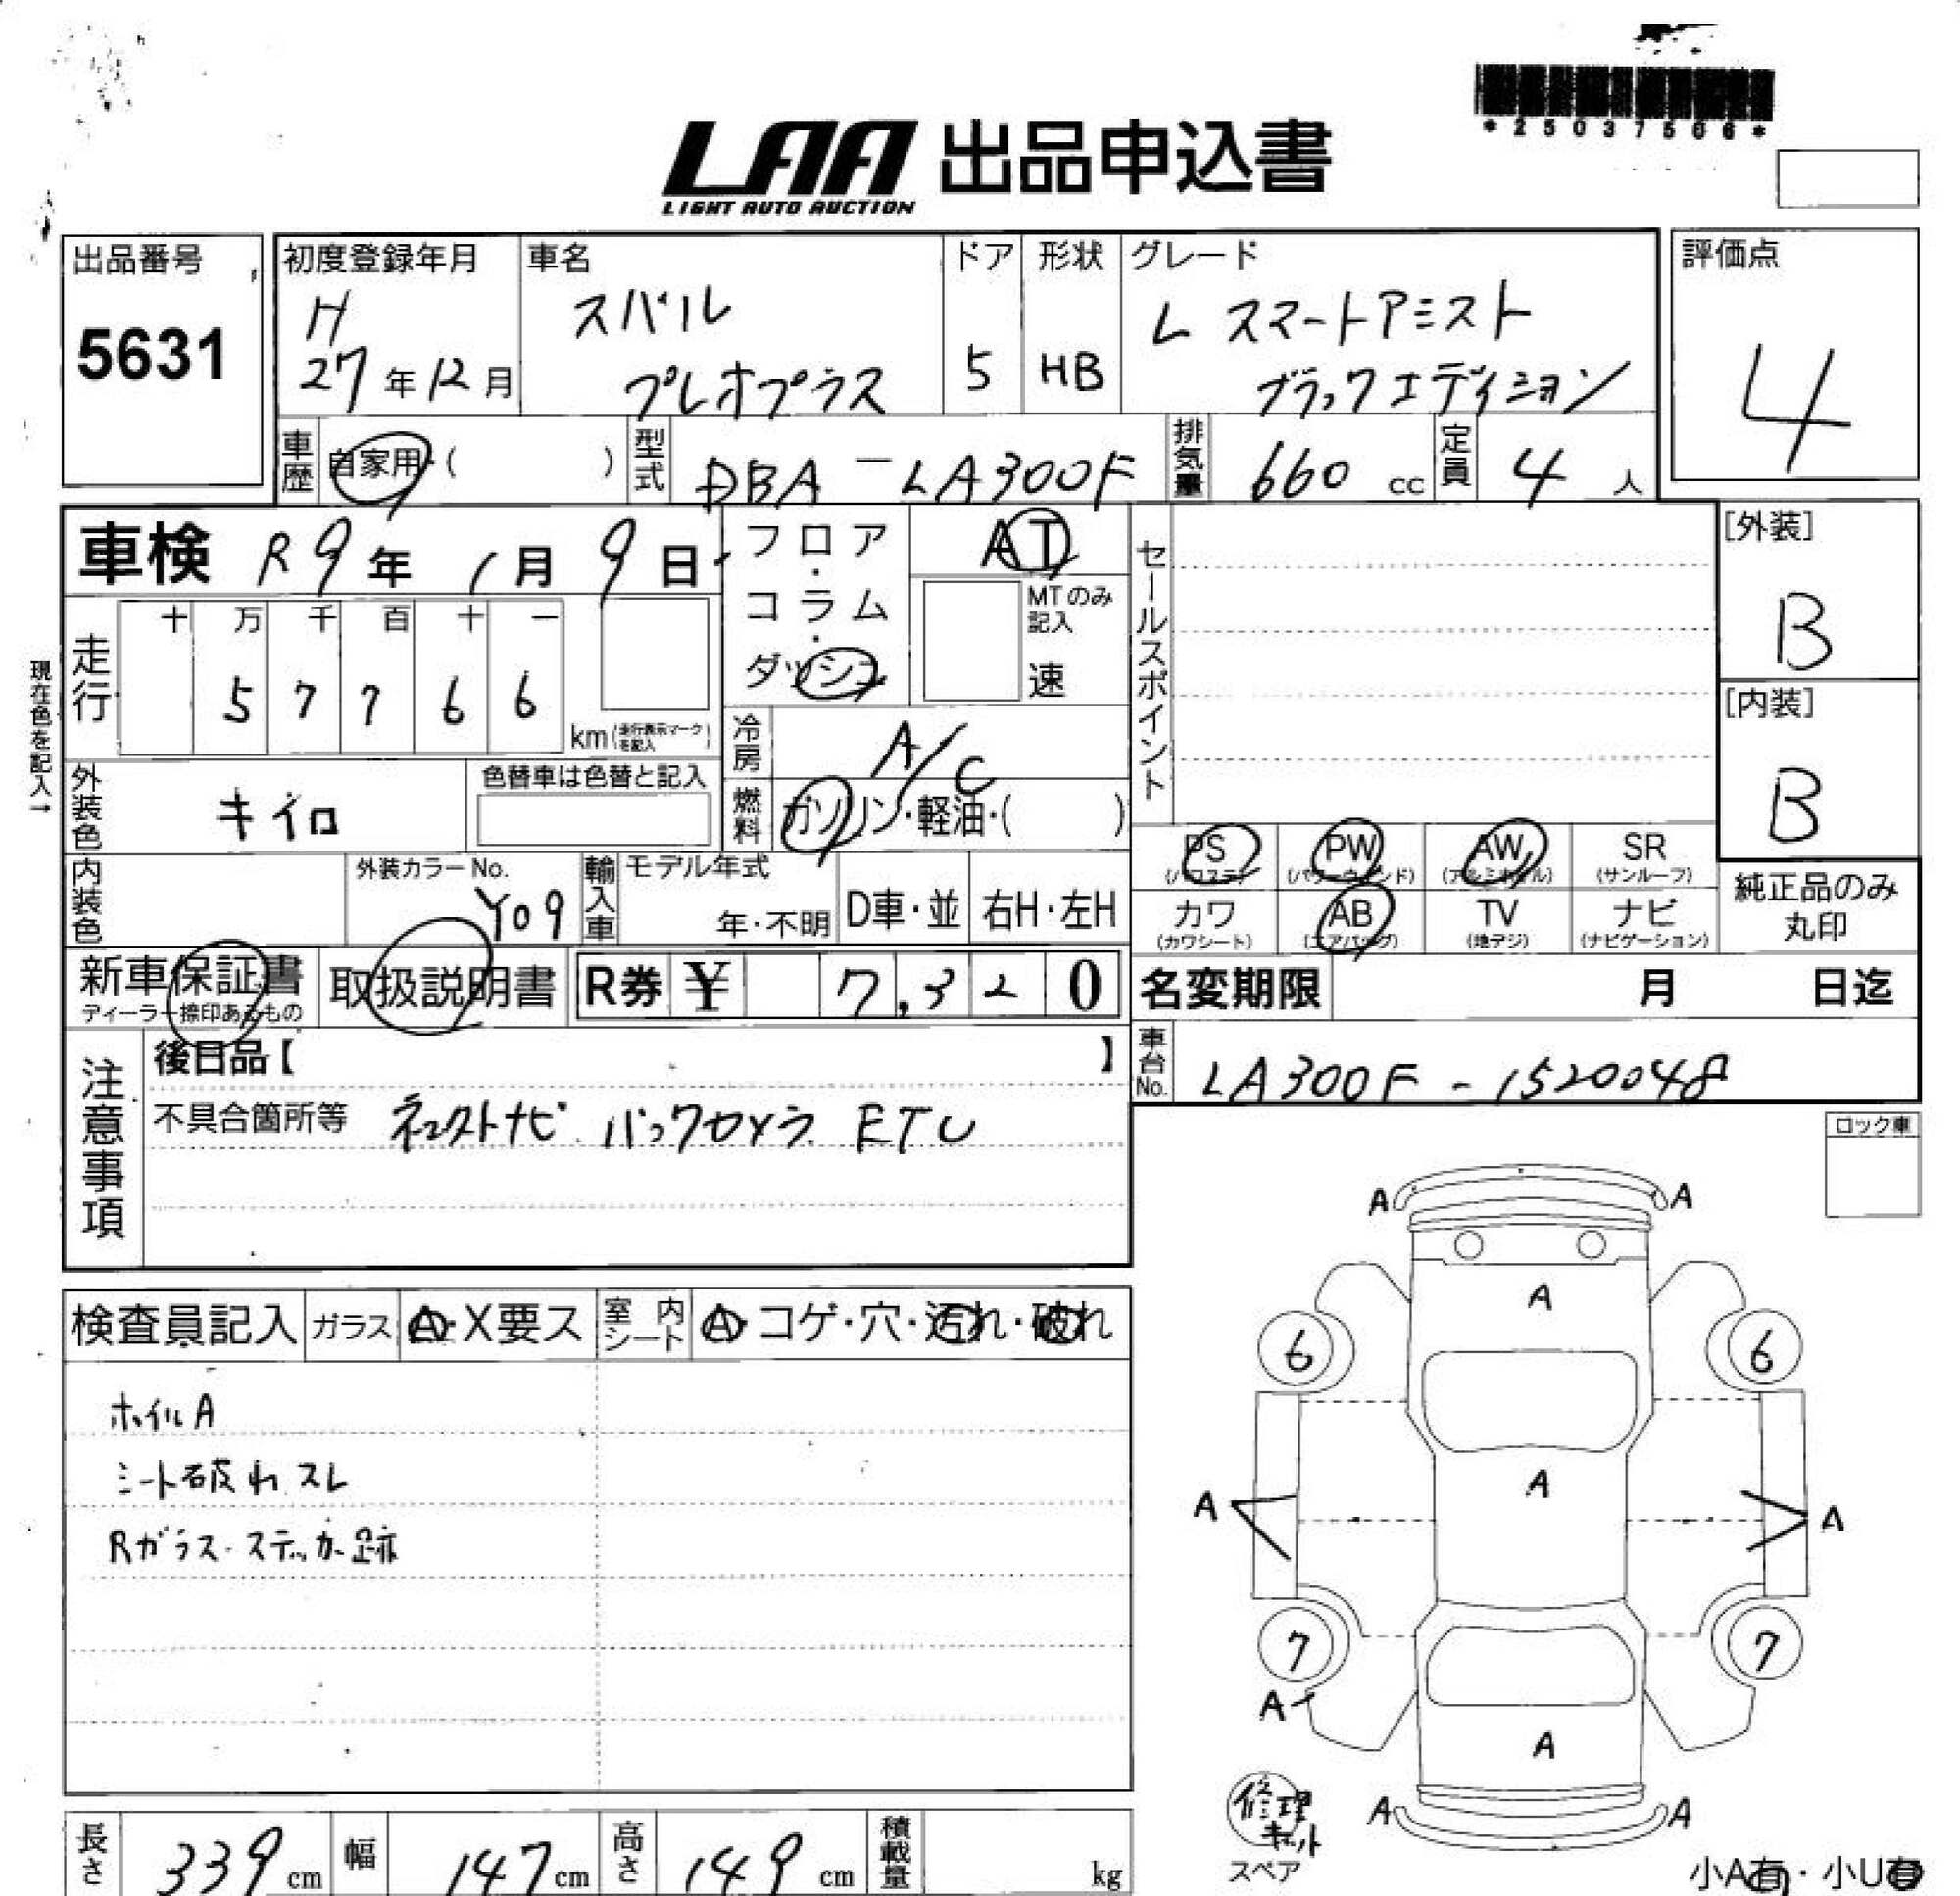 *25037506*
LAA 出品申込書
LIGHT AUTO AUCTION
出品番号
5631
初度登録年月
H
27年12月
車名
スバル
プレオプラス
ドア
5
形状
HB
グレード
L スマートアシスト
ブラックエディション
評価点
4
車歴
自家用・( )
型式
DBA-LA300F
排気量
660 cc
定員
4 人
車検 R9年 1月 9日
フロア・コラム・ダッシュ
AT
MTのみ記入
速
セールスポイント
[外装]
B
[内装]
B
現在色を記入→
走行
十 万 千 百 十 一
5 7 7 6 6
km(走行表示マークを記入)
冷房
A/C
外装色
キイロ
色替車は色替と記入
燃料
ガソリン・軽油・( )
PS (パワステ)
PW (パワーウィンド)
AW (アルミホイル)
SR (サンルーフ)
カワ (カワシート)
AB (エアバッグ)
TV (地デジ)
ナビ (ナビゲーション)
純正品のみ
丸印
内装色
外装カラーNo.
Y09
輸入車
モデル年式
年・不明
D車・並
右H・左H
新車保証書
ディーラー捺印あるもの
取扱説明書
R券 ¥ 7,320
名変期限 月 日迄
注意事項
後日品【 】
車台No.
LA300F-1520048
不具合箇所等 ネクストナビ バックカメラ ETC
ロック車
検査員記入
ガラス
A・X要ス
室内シート
A・コゲ・穴・汚れ・破れ
ホイルA
シート破れ スレ
Rガラス・ステッカー跡
A A
A
6 6
A
A A
7 7
A
A
A A
修理キット
スペア
小A有・小U有
長さ 339cm
幅 147cm
高さ 149cm
積載量 kg